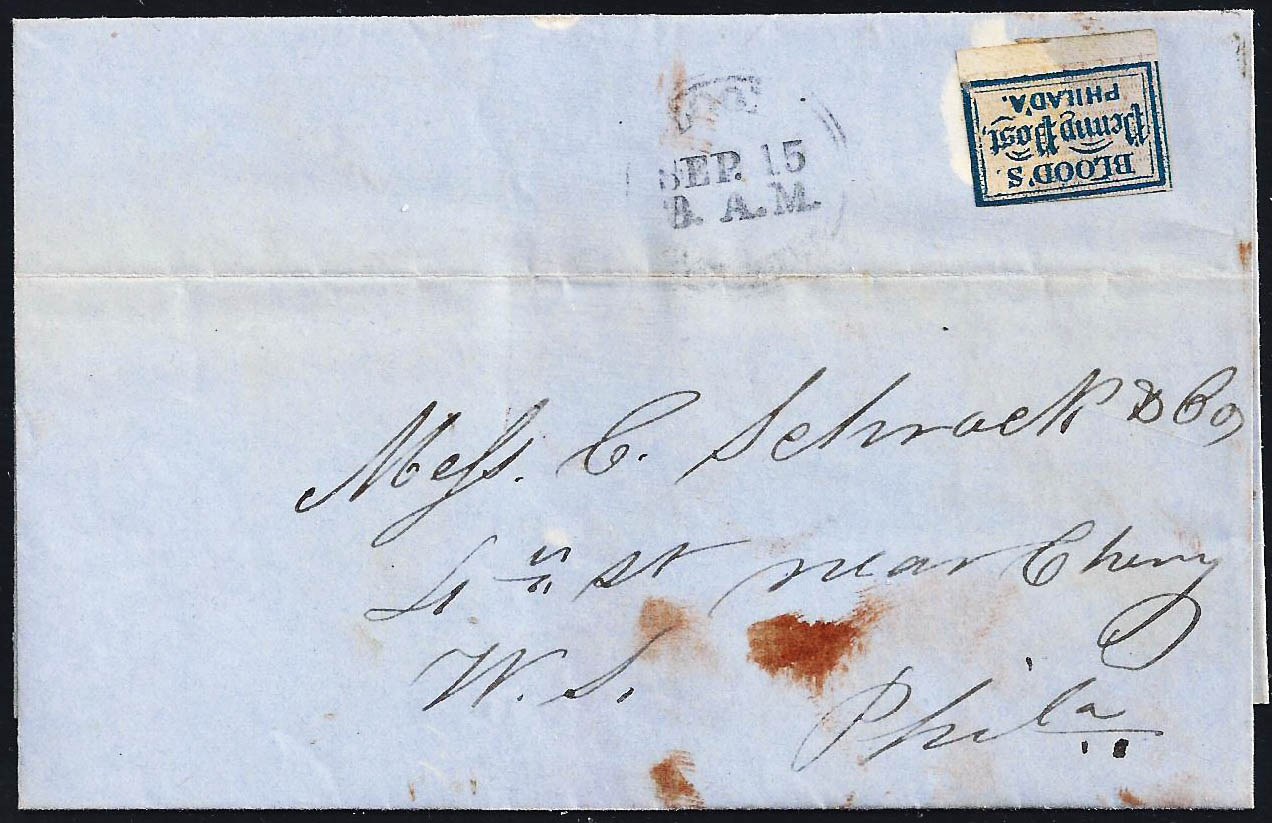 BLOOD'S
Penny Post,
PHILAD'A.
SEP. 15
8. A.M.
Mess. C. Schrack & Co
4th st near Cherry
W. S.
Phila